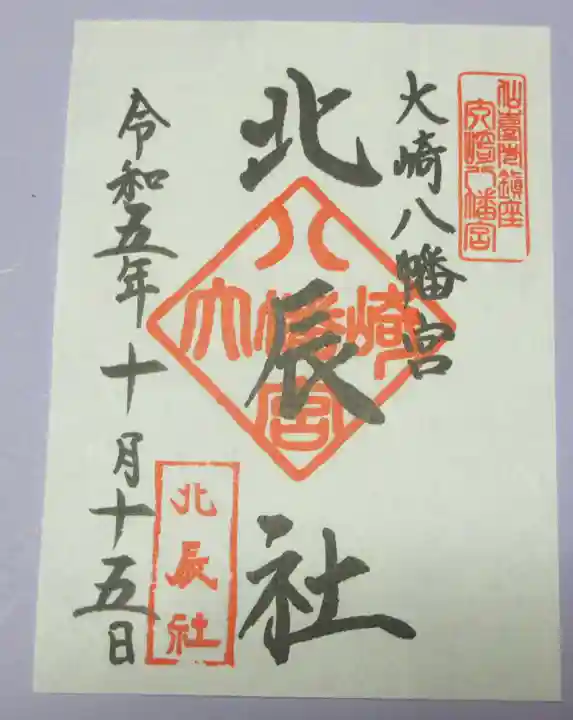 仙臺市鎮座
大崎八幡宮
大崎八幡宮
北辰社
八
大崎幡
宮
令和五年十月十五日
北辰社